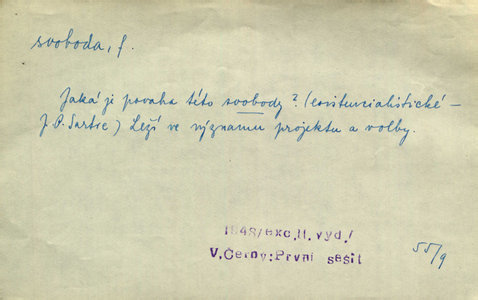 svoboda, f.
Jaká je povaha této svobody? (existencialistické –
J. P. Sartre) Leží ve významu projektu a volby.
1948/exc. II. vyd./
V. Černý: První sešit
55/9